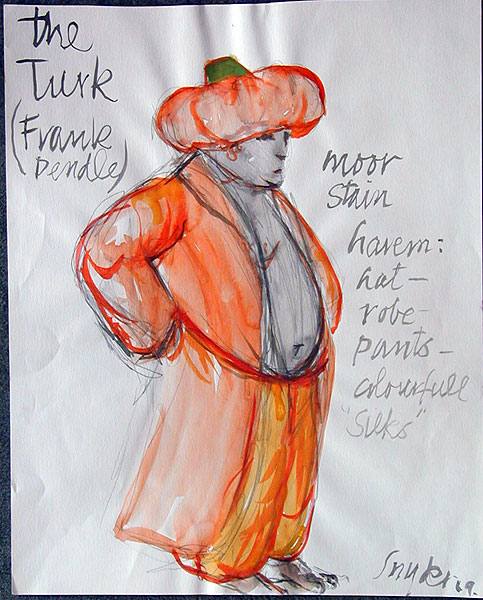 the
Turk
(Frank
Dendle)
moor
stain
harem:
hat-
robe-
pants-
colourfull
"silks"